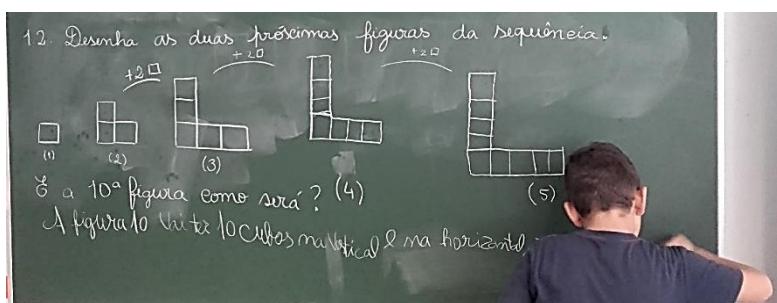 1.2. Desenha as duas próximas figuras da sequência.
+2□ +2□ +2□
(1) (2) (3) (4) (5)
E a 10ª figura como será?
A figura 10 vai ter 10 cubos na vertical e na horizontal,